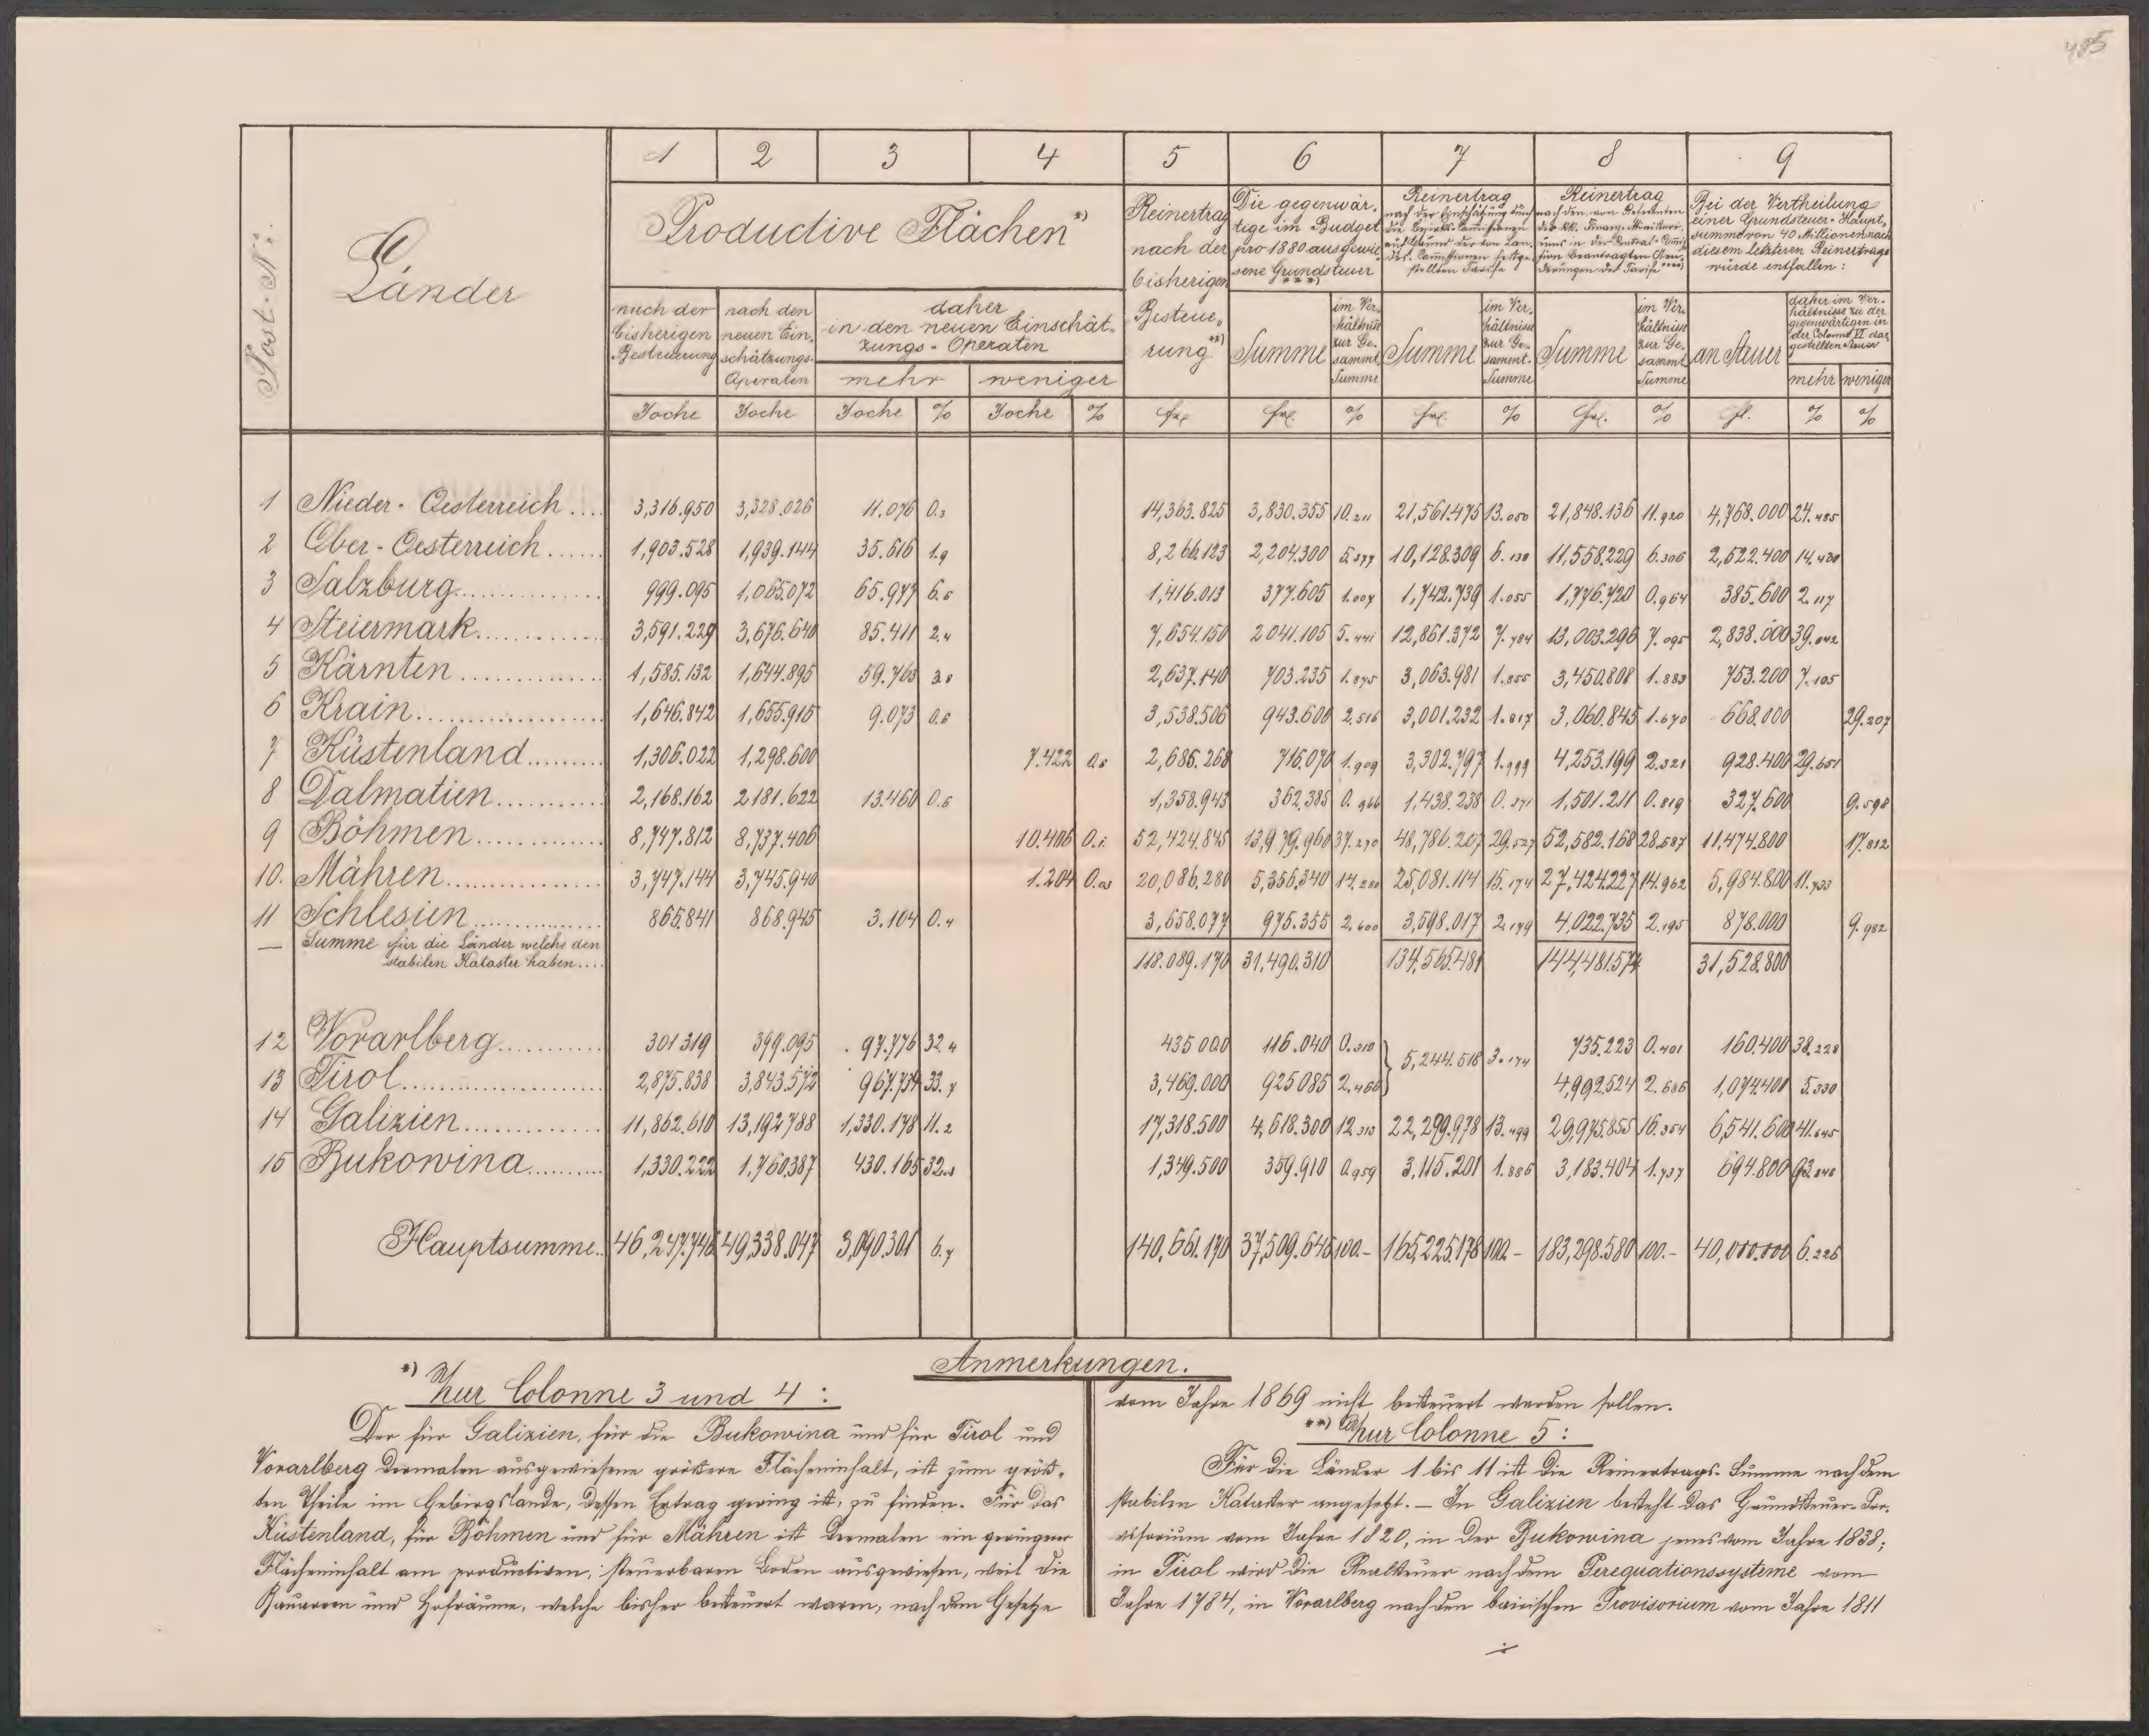 485
1 2 3 4 5 6 7 8 9
Post-No.
Länder
Productive Flächen *)
nach der bisherigen Besteuerung
nach den neuen Einschätzungs-Operaten
daher in den neuen Einschätzungs-Operaten
mehr weniger
Reinertrag nach der bisherigen Besteuerung **)
Die gegenwärtige im Budget pro 1880 ausgewiesene Grundsteuer ***)
Reinertrag nach der Einschätzung durch die Bezirks-Commissionen und der von Landes-Commissionen festgestellten Tarife
Reinertrag nach den, von Referenten des kk. Finanz-Ministeriums in der Central-Commission beantragten Aenderungen des Tarifs ****)
Bei der Vertheilung einer Grundsteuer-Hauptsumme von 40 Millionen nach diesem letzteren Reinertrage würde entfallen:
Summe im Verhältnisse zur Gesammt-Summe
Summe im Verhältnisse zur Gesammt-Summe
Summe im Verhältnisse zur Gesammt-Summe
an Steuer
daher im Verhältnisse zu der gegenwärtigen in der Colonne VI dargestellten Steuer
mehr weniger
Joche Joche Joche % Joche % fl. fl. % fl. % fl. % fl. % %
1 Nieder-Oesterreich.... 3,316.950 3,328.026 11.076 0.3 14,363.825 3,830.355 10.211 21,561.475 13.050 21,848.136 11.920 4,768.000 24.485
2 Ober-Oesterreich...... 1,903.528 1,939.144 35.616 1.9 8,266.123 2,204.300 5.877 10,128.309 6.130 11,558.229 6.306 2,522.400 14.430
3 Salzburg............... 999.095 1,065.072 65.977 6.6 1,416.013 377.605 1.007 1,742.739 1.055 1,776.720 0.964 385.600 2.117
4 Steiermark............ 3,591.229 3,676.640 85.411 2.4 7,654.150 2041.105 5.441 12,861.372 7.784 13,003.296 7.095 2,838.000 39.042
5 Kärnten............... 1,585.132 1,644.895 59.763 3.8 2,637.140 703.235 1.875 3,063.981 1.855 3,450.808 1.883 753.200 7.105
6 Krain................... 1,646.842 1,655.915 9.073 0.6 3,538.506 943.600 2.516 3,001.232 1.817 3,060.845 1.670 668.000 29.207
7 Küstenland......... 1,306.022 1,298.600 7.422 0.6 2,685.268 716.070 1.909 3,302.797 1.999 4,253.199 2.321 928.400 29.651
8 Dalmatien........... 2,168.162 2181.622 13.460 0.6 1,358.943 362.385 0.966 1,438.238 0.871 1,501.211 0.819 327.600 9.598
9 Böhmen............. 8,747.812 8,737.406 10.406 0.1 52,424.845 13,979.960 37.270 48,786.207 29.527 52,582.168 28.687 11,474.800 17.812
10. Mähren............... 3,747.144 3,745.940 1.204 0.03 20,086.280 5,356.340 14.280 25,081.114 15.174 27,424.227 14.962 5,984.800 11.733
11 Schlesien............... 865.841 868.945 3.104 0.4 3,658.077 975.355 2.600 3,598.017 2.179 4,022.735 2.195 878.000 9.982
— Summe für die Länder welche den
stabilen Kataster haben.... 118.089.170 31,490.310 134,565.481 144,481.574 31,528.800
12 Vorarlberg........... 301319 399.095 97.776 32.4 435000 116.040 0.310 735.223 0.401 160.400 38.228
5,244.518 3.174
13 Tirol..................... 2,875.838 3,843.572 967.734 33.7 3,469.000 925085 2.466 4,992.524 2.686 1,074.400 5.330
14 Galizien.............. 11,862.610 13,192788 1,330.178 11.2 17,318.500 4,618.300 12.313 22,299.978 13.499 29,975.855 16.354 6,541.600 41.645
15 Bukowina......... 1,330.222 1,760387 430.165 32.3 1,349.500 359.910 0.959 3,115.201 1.886 3,183.404 1.737 694.800 93.048
Hauptsumme.. 46,247.746 49,338.047 3,090.301 6.7 140,661.170 37,509.645 100.- 165,225.178 100.- 183,298.580 100.- 40,000.000 6.226
Anmerkungen.
*) Zur Colonne 3 und 4:
Der für Galizien, für die Bukowina und für Tirol und
Vorarlberg dermalen ausgewiesene größere Flächeninhalt, ist zum größ-
ten Theile im Gebirgslande, dessen Ertrag gering ist, zu finden. Für das
Küstenland, für Böhmen und für Mähren ist dermalen ein geringerer
Flächeninhalt am productiven, steuerbaren Boden ausgewiesen, weil die
Bauareen und Hofräume, welche bisher besteuert waren, nach dem Gesetze
vom Jahre 1869 nicht besteuert werden sollen.
**) Zur Colonne 5:
Für die Länder 1 bis 11 ist die Reinertrags-Summe nach dem
stabilen Kataster angesetzt. — In Galizien besteht das Grundsteuer-Pro-
visorium vom Jahre 1820, in der Bukowina jenes vom Jahre 1838;
in Tirol wird die Realsteuer nach dem Perequationssysteme vom
Jahre 1784, in Vorarlberg nach den bairischen Provisorium vom Jahre 1811